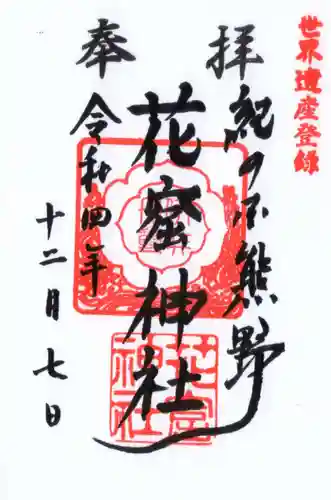 世界遺産登録
奉拝
紀の国熊野
花窟神社
令和四年
十二月七日
花窟神社